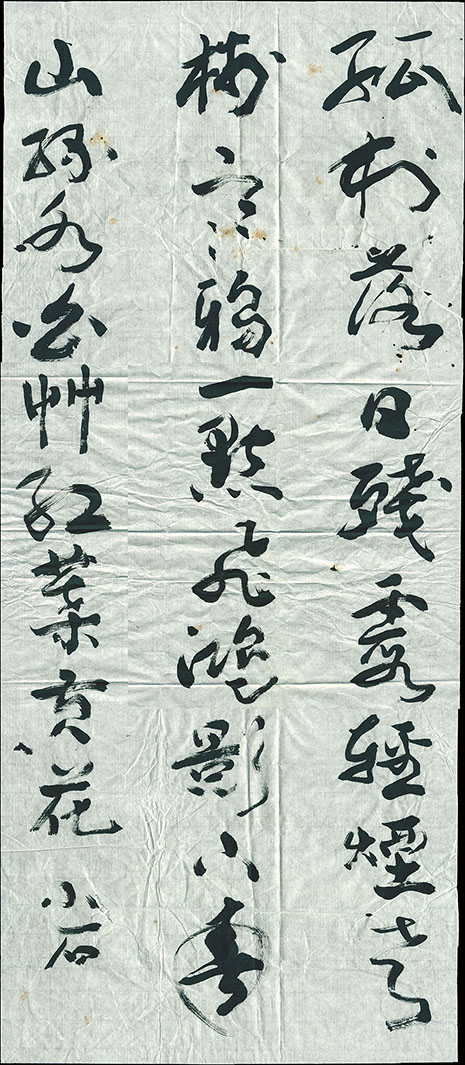 孤村落日殘霞輕煙老
樹寒鴉一點飛鴻影下青
山綠水白艸紅葉黃花 小石